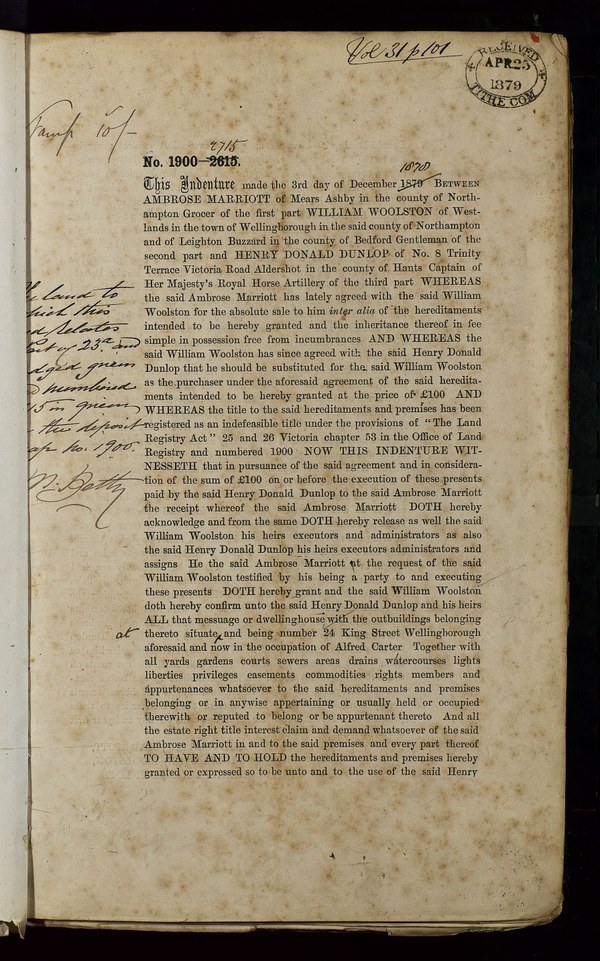 Vol 31 p 101
RECEIVED
APR 25
1879
TITHE COM
Stamp 10/-
2715
No. 1900—2615.
1878
This Indenture made the 3rd day of December 1879 BETWEEN
AMBROSE MARRIOTT of Mears Ashby in the county of North-
ampton Grocer of the first part WILLIAM WOOLSTON of West-
lands in the town of Wellingborough in the said county of Northampton
and of Leighton Buzzard in the county of Bedford Gentleman of the
second part and HENRY DONALD DUNLOP of No. 8 Trinity
Terrace Victoria Road Aldershot in the county of Hants Captain of
Her Majesty's Royal Horse Artillery of the third part WHEREAS
the said Ambrose Marriott has lately agreed with the said William
Woolston for the absolute sale to him inter alia of the hereditaments
intended to be hereby granted and the inheritance thereof in fee
simple in possession free from incumbrances AND WHEREAS the
said William Woolston has since agreed with the said Henry Donald
Dunlop that he should be substituted for the said William Woolston
as the purchaser under the aforesaid agreement of the said heredita-
ments intended to be hereby granted at the price of £100 AND
WHEREAS the title to the said hereditaments and premises has been
registered as an indefeasible title under the provisions of "The Land
Registry Act" 25 and 26 Victoria chapter 53 in the Office of Land
Registry and numbered 1900 NOW THIS INDENTURE WIT-
NESSETH that in pursuance of the said agreement and in considera-
tion of the sum of £100 on or before the execution of these presents
paid by the said Henry Donald Dunlop to the said Ambrose Marriott
the receipt whereof the said Ambrose Marriott DOTH hereby
acknowledge and from the same DOTH hereby release as well the said
William Woolston his heirs executors and administrators as also
the said Henry Donald Dunlop his heirs executors administrators and
assigns He the said Ambrose Marriott at the request of the said
William Woolston testified by his being a party to and executing
these presents DOTH hereby grant and the said William Woolston
doth hereby confirm unto the said Henry Donald Dunlop and his heirs
ALL that messuage or dwellinghouse with the outbuildings belonging
at
thereto situate and being number 24 King Street Wellingborough
aforesaid and now in the occupation of Alfred Carter Together with
all yards gardens courts sewers areas drains watercourses lights
liberties privileges easements commodities rights members and
appurtenances whatsoever to the said hereditaments and premises
belonging or in anywise appertaining or usually held or occupied
therewith or reputed to belong or be appurtenant thereto And all
the estate right title interest claim and demand whatsoever of the said
Ambrose Marriott in and to the said premises and every part thereof
TO HAVE AND TO HOLD the hereditaments and premises hereby
granted or expressed so to be unto and to the use of the said Henry
land to
which this
relates
part of 23a and
edged green
numbered
15 in green
the deposit
map no. 1900.